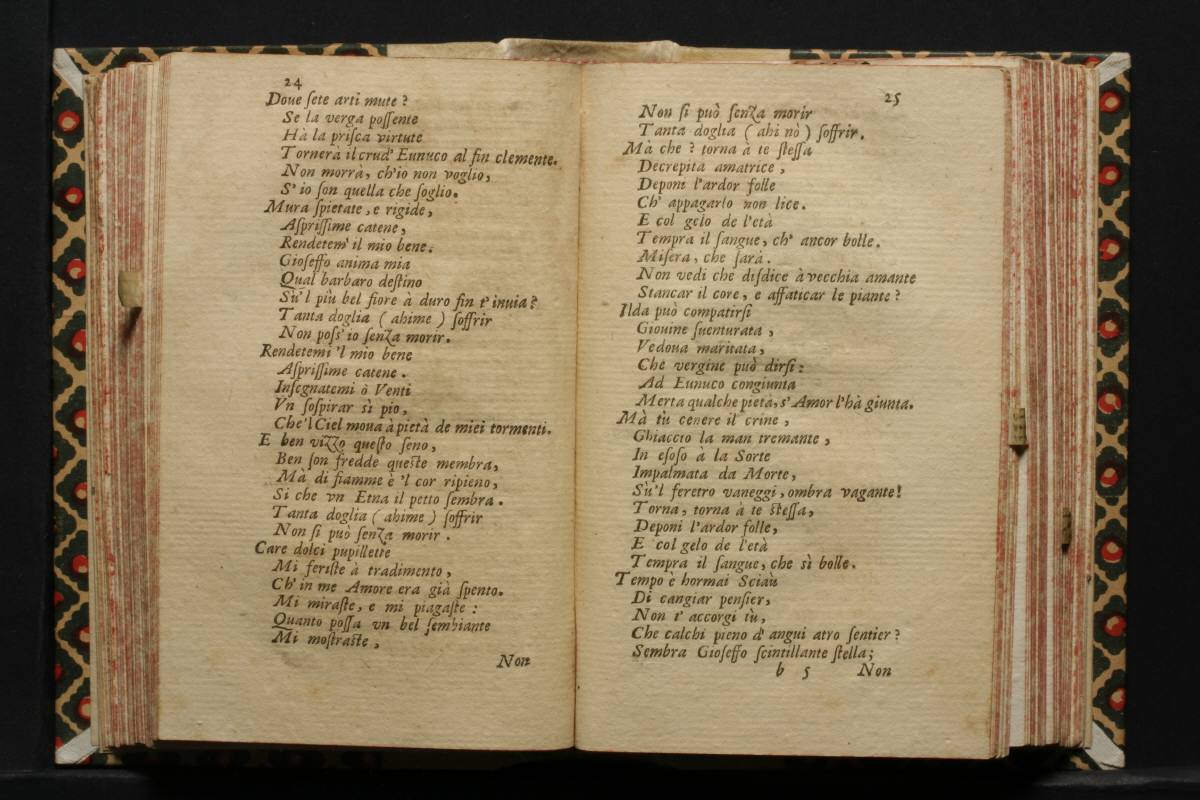 24
Doue ſete arti mute ?
Se la verga poſſente
Hà la priſca virtute
Tornerà il crud' Eunuco al fin clemente.
Non morrà, ch'io non voglio,
S' io ſon quella che ſoglio.
Mura ſpietate, e rigide,
Aſpriſſime catene,
Rendetem' il mio bene.
Gioſeffo anima mia
Qual barbaro deſtino
Sù'l più bel fiore à duro fin t' inuia?
Tanta doglia ( ahime ) ſoffrir
Non poſs' io ſenza morir.
Rendetemi 'l mio bene
Aſpriſſime catene .
Inſegnatemi ò Venti
Vn ſoſpirar sì pio,
Che'l Ciel moua à pietà de miei tormenti.
E ben vizzo queſto ſeno,
Ben ſon fredde queſte membra,
Mà di fiamme è 'l cor ripieno,
Si che vn Etna il petto ſembra .
Tanta doglia ( ahime ) ſoffrir
Non ſi può ſenza morir .
Care dolci pupillette
Mi feriſte à tradimento,
Ch' in me Amore era già ſpento.
Mi miraſte, e mi piagaſte :
Quanto poſſa vn bel ſembiante
Mi moſtraſte,
Non
25
Non ſi può ſenza morir
Tanta doglia ( ahi nò ) ſoffrir.
Mà che ? torna à te ſteſſa
Decrepita amatrice,
Deponi l'ardor folle
Ch' appagarlo non lice.
E col gelo de l'età
Tempra il ſangue, ch' ancor bolle.
Miſera, che ſarà .
Non vedi che diſdice à vecchia amante
Stancar il core, e affaticar le piante ?
Ilda può compatirſi
Giouine ſuenturata ,
Vedoua maritata,
Che vergine può dirſi:
Ad Eunuco congiunta
Merta qualche pietà, s' Amor l'hà giunta.
Mà tù cenere il crine ,
Ghiaccio la man tremante ,
In eſoſo à la Sorte
Impalmata da Morte,
Sù'l feretro vaneggi, ombra vagante!
Torna, torna à te ſteſſa,
Deponi l'ardor folle,
E col gelo de l'età
Tempra il ſangue, che sì bolle.
Tempo è hormai Sciaù
Di cangiar penſier,
Non t' accorgi tù,
Che calchi pieno d' angui atro ſentier ?
Sembra Gioſeffo ſcintillante ſtella;
b 5 Non